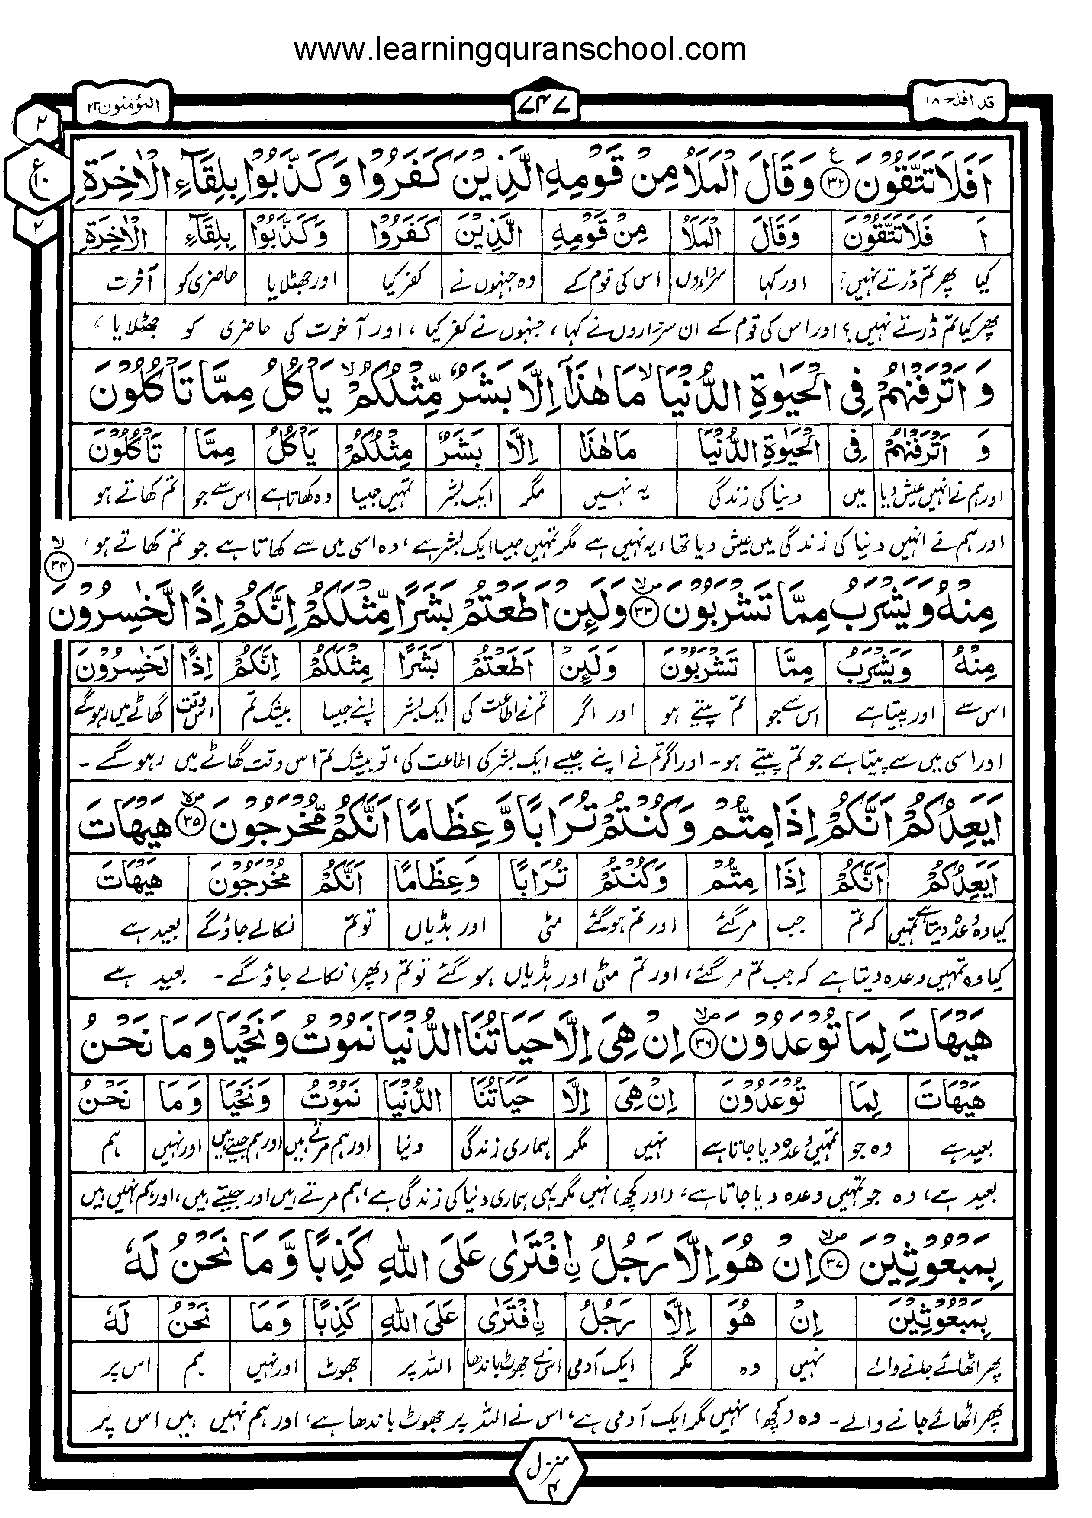 www.learningquranschool.com
قد افلح ۱۸
۷۴۷
المؤمنون ۲۳
۲
ع
۱۰
۲
اَفَلَا تَتَّقُوْنَ ۝۳۲ وَقَالَ الْمَلَاُ مِنْ قَوْمِهِ الَّذِيْنَ كَفَرُوْا وَكَذَّبُوْا بِلِقَآءِ الْاٰخِرَةِ
اَ فَلَا تَتَّقُوْنَ وَقَالَ الْمَلَاُ مِنْ قَوْمِهِ الَّذِيْنَ كَفَرُوْا وَكَذَّبُوْا بِلِقَآءِ الْاٰخِرَةِ
کیا پھر تم ڈرتے نہیں؟ اور کہا سرداروں اس کی قوم کے وہ جنہوں نے کفر کیا اور جھٹلایا حاضری کو آخرت
پھر کیا تم ڈرتے نہیں؟ اور اس کی قوم کے ان سرداروں نے کہا، جنہوں نے کفر کیا، اور آخرت کی حاضری کو جھٹلایا،
وَ اَتْرَفْنٰهُمْ فِى الْحَيٰوةِ الدُّنْيَا ۙ مَا هٰذَآ اِلَّا بَشَرٌ مِّثْلُكُمْ ۙ يَاْكُلُ مِمَّا تَاْكُلُوْنَ
وَ اَتْرَفْنٰهُمْ فِى الْحَيٰوةِ الدُّنْيَا مَا هٰذَا اِلَّا بَشَرٌ مِثْلُكُمْ يَاْكُلُ مِمَّا تَاْكُلُوْنَ
اور ہم نے انہیں عیش دیا میں دنیا کی زندگی یہ نہیں مگر ایک بشر تمہیں جیسا وہ کھاتا ہے اس سے جو تم کھاتے ہو
اور ہم نے انہیں دنیا کی زندگی میں عیش دیا تھا، یہ نہیں ہے مگر تمہیں جیسا ایک بشر ہے، وہ اسی میں سے کھاتا ہے جو تم کھاتے ہو،
مِنْهُ وَيَشْرَبُ مِمَّا تَشْرَبُوْنَ ۝۳۳ وَلَئِنْ اَطَعْتُمْ بَشَرًا مِّثْلَكُمْ اِنَّكُمْ اِذًا لَّخٰسِرُوْنَ ۝۳۴
مِنْهُ وَيَشْرَبُ مِمَّا تَشْرَبُوْنَ وَلَئِنْ اَطَعْتُمْ بَشَرًا مِثْلَكُمْ اِنَّكُمْ اِذًا لَخٰسِرُوْنَ
اس سے اور پیتا ہے اس سے جو تم پیتے ہو اور اگر تم نے اطاعت کی ایک بشر اپنے جیسا بیشک تم اس وقت گھاٹے میں رہوگے
اور اسی میں سے پیتا ہے جو تم پیتے ہو۔ اور اگر تم نے اپنے جیسے ایک بشر کی اطاعت کی، تو بیشک تم اس وقت گھاٹے میں رہو گے۔
اَيَعِدُكُمْ اَنَّكُمْ اِذَا مِتُّمْ وَكُنْتُمْ تُرَابًا وَّعِظَامًا اَنَّكُمْ مُّخْرَجُوْنَ ۝۳۵ هَيْهَاتَ
اَيَعِدُكُمْ اَنَّكُمْ اِذَا مِتُّمْ وَكُنْتُمْ تُرَابًا وَعِظَامًا اَنَّكُمْ مُخْرَجُوْنَ هَيْهَاتَ
کیا وہ وعدہ دیتا ہے تمہیں کہ تم جب مر گئے اور تم ہو گئے مٹی اور ہڈیاں تو تم نکالے جاؤ گے بعید ہے
کیا وہ تمہیں وعدہ دیتا ہے کہ جب تم مر گئے، اور تم مٹی اور ہڈیاں ہو گئے تو تم (پھر) نکالے جاؤ گے۔ بعید ہے
هَيْهَاتَ لِمَا تُوْعَدُوْنَ ۝۳۶ اِنْ هِىَ اِلَّا حَيَاتُنَا الدُّنْيَا نَمُوْتُ وَنَحْيَا وَمَا نَحْنُ
هَيْهَاتَ لِمَا تُوْعَدُوْنَ اِنْ هِىَ اِلَّا حَيَاتُنَا الدُّنْيَا نَمُوْتُ وَنَحْيَا وَمَا نَحْنُ
بعید ہے وہ جو تمہیں وعدہ دیا جاتا ہے نہیں مگر ہماری زندگی دنیا اور ہم مرتے ہیں اور ہم جیتے ہیں اور نہیں ہم
بعید ہے، وہ جو تمہیں وعدہ دیا جاتا ہے، (اور کچھ) نہیں مگر یہی ہماری دنیا کی زندگی ہے، ہم مرتے ہیں اور جیتے ہیں، اور ہم نہیں ہیں
بِمَبْعُوْثِيْنَ ۝۳۷ اِنْ هُوَ اِلَّا رَجُلُ ۨافْتَرٰى عَلَى اللّٰهِ كَذِبًا وَّمَا نَحْنُ لَهٗ
بِمَبْعُوْثِيْنَ اِنْ هُوَ اِلَّا رَجُلُ ۨافْتَرٰى عَلَى اللّٰهِ كَذِبًا وَمَا نَحْنُ لَهٗ
پھر اٹھائے جانے والے نہیں وہ مگر ایک آدمی اس نے جھوٹ باندھا اللہ پر جھوٹ اور نہیں ہم اس پر
پھر اٹھائے جانے والے۔ وہ (کچھ) نہیں مگر ایک آدمی ہے، اس نے اللہ پر جھوٹ باندھا ہے، اور ہم نہیں ہیں اس پر
منزل
۴